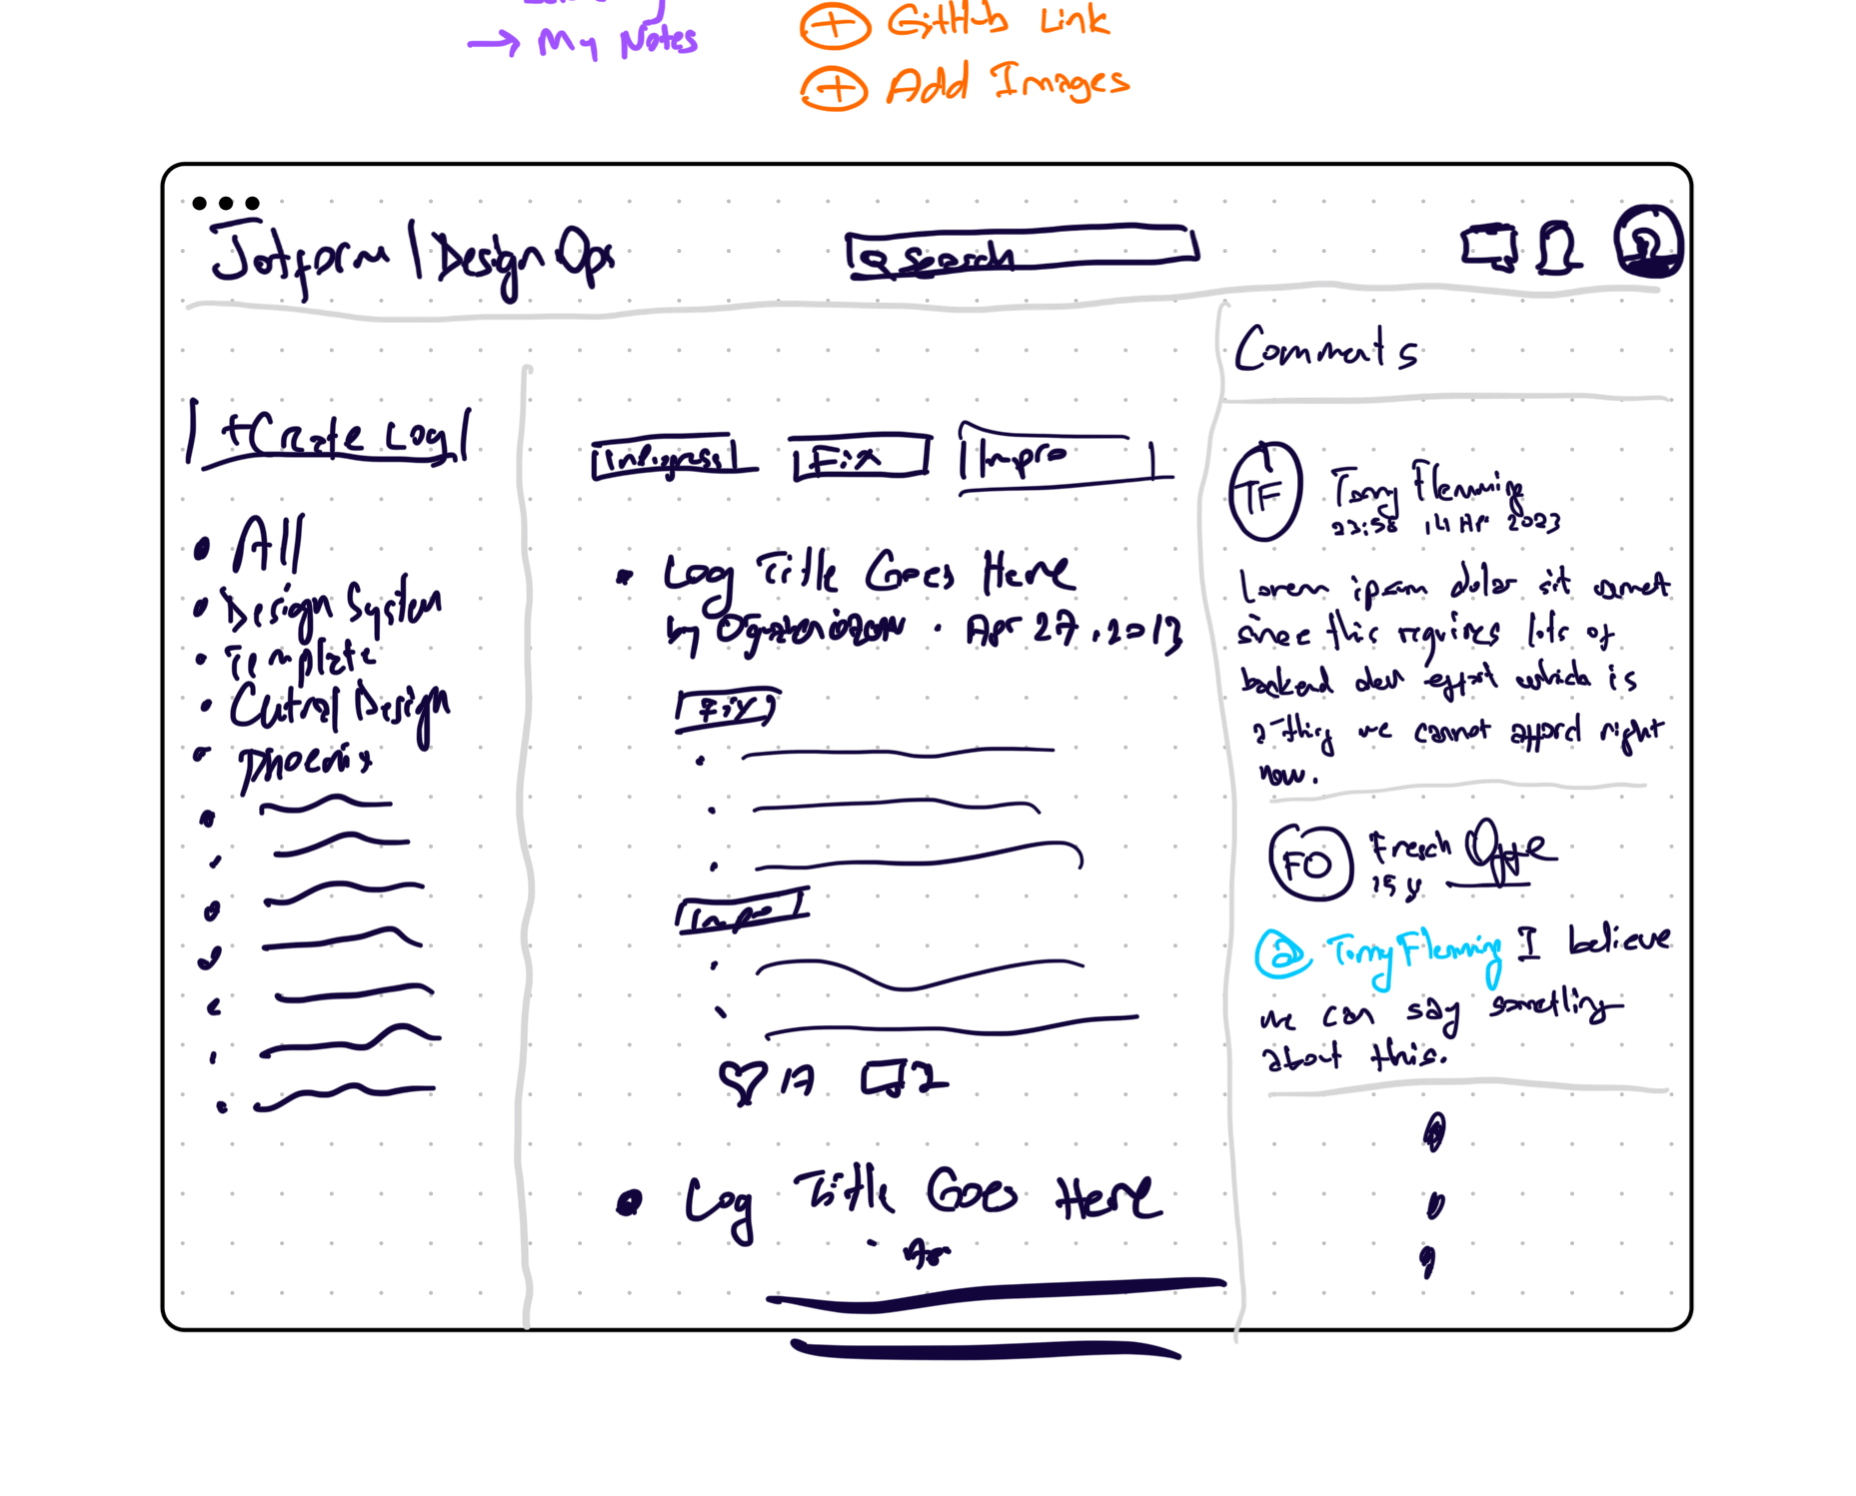 → My Notes
+ GitHub Link
+ Add Images
Jotform | Design Ops
Search
+ Create Log
• All
• Design System
• Template
• Cutral Design
• Phoenix
Inprogress
Fix
Impro
• Log Title Goes Here
by • Apr 27, 2013
Fix
Impro
17
2
• Log Title Goes Here
• Apr
Comments
TF
Tomy Flemming
23:58 14 Apr 2023
Lorem ipsum dolar sit amet
since this requires lots of
backend dev effort which is
a thing we cannot afford right
now.
FO
Fresch
15 y
@ Tomy Flemming I believe
we can say something
about this.